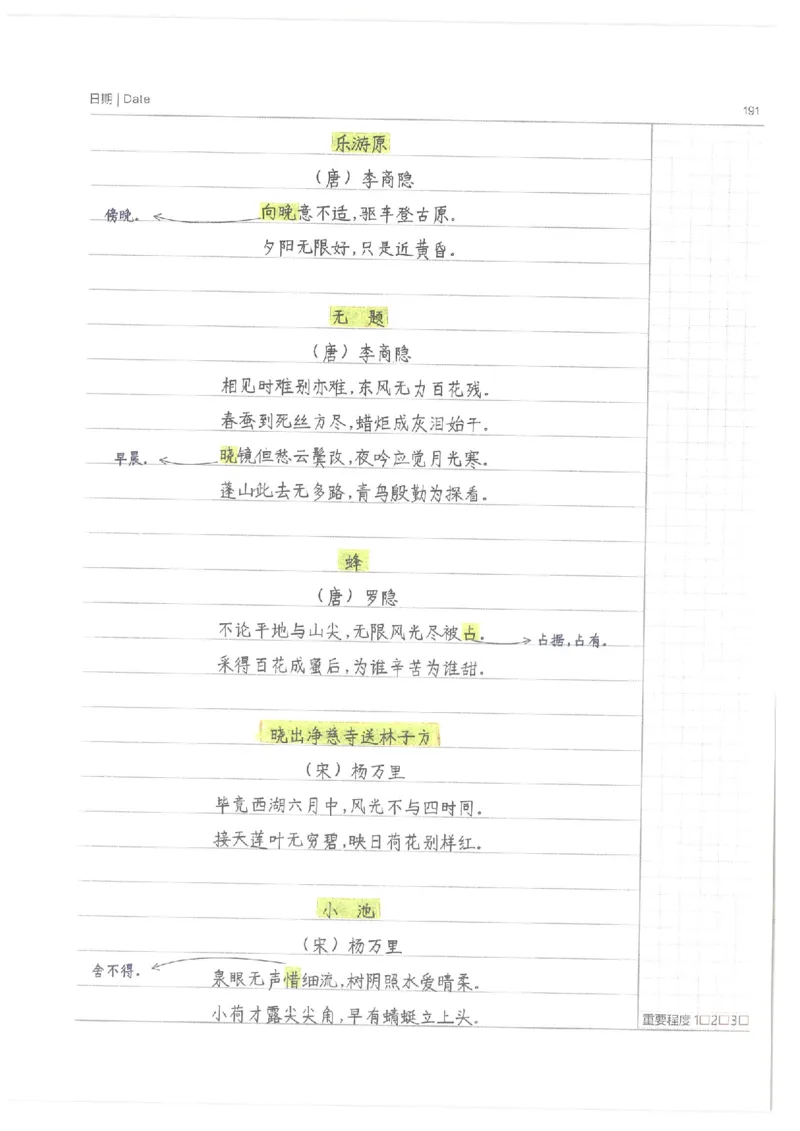 日期 | Date
191
乐游原
（唐）李商隐
傍晚。 向晚意不适,驱车登古原。
夕阳无限好,只是近黄昏。
无 题
（唐）李商隐
相见时难别亦难,东风无力百花残。
春蚕到死丝方尽,蜡炬成灰泪始干。
早晨。 晓镜但愁云鬓改,夜吟应觉月光寒。
蓬山此去无多路,青鸟殷勤为探看。
蜂
（唐）罗隐
不论平地与山尖,无限风光尽被占。 占据,占有。
采得百花成蜜后,为谁辛苦为谁甜.
晓出净慈寺送林子方
（宋）杨万里
毕竟西湖六月中,风光不与四时同。
接天莲叶无穷碧,映日荷花别样红。
小 池
（宋）杨万里
舍不得. 泉眼无声惜细流,树阴照水爱晴柔。
小荷才露尖尖角,早有蜻蜓立上头。
重要程度 1□2□3□